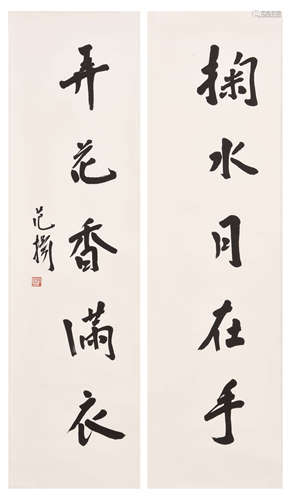 掬水月在手
弄花香滿衣
范揚